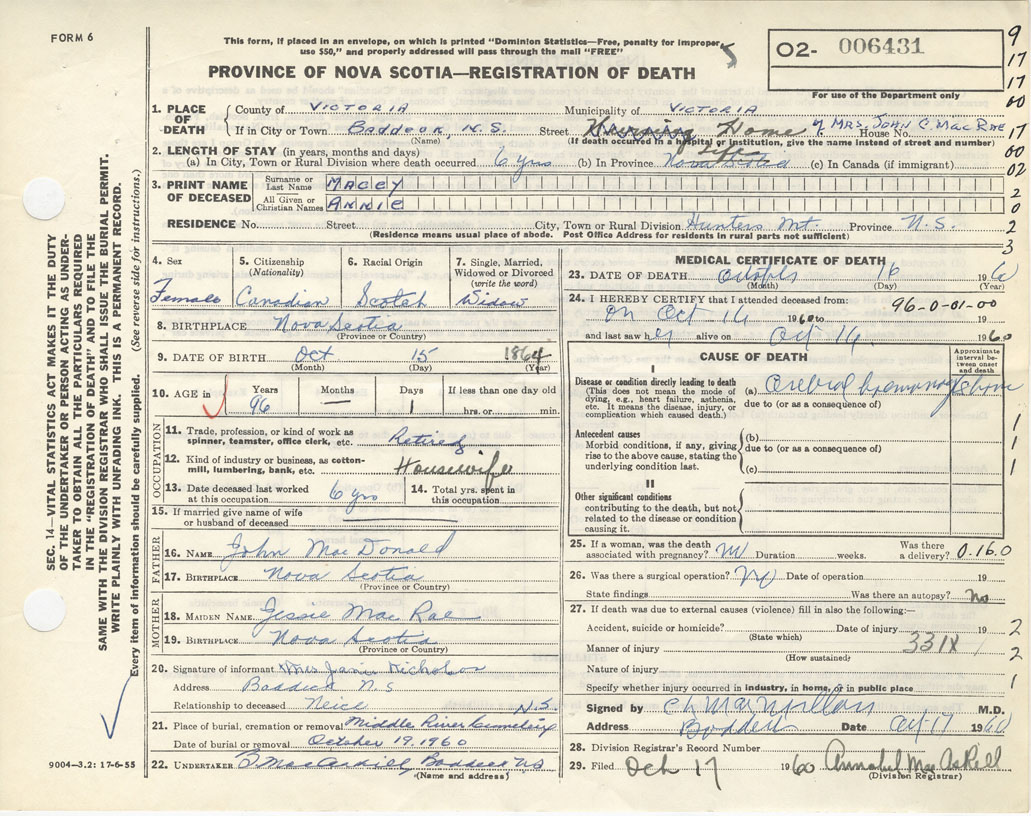 FORM 6
This form, if placed in an envelope, on which is printed "Dominion Statistics—Free, penalty for improper
use $50," and properly addressed will pass through the mail "FREE"
02- 006431
For use of the Department only
PROVINCE OF NOVA SCOTIA—REGISTRATION OF DEATH
9
17
17
00
17
00
02
2
0
2
3
1. PLACE OF DEATH
County of VICTORIA Municipality of VICTORIA
If in City or Town Baddeck, N.S. Street Nursing Home of MRS. JOHN C. MacRAE House No.
(Name) (If death occurred in a hospital or institution, give the name instead of street and number)
2. LENGTH OF STAY (in years, months and days)
(a) In City, Town or Rural Division where death occurred 6 yrs (b) In Province Life Nova Scotia (c) In Canada (if immigrant)
3. PRINT NAME OF DECEASED
Surname or Last Name MACEY
All Given or Christian Names ANNIE
RESIDENCE No. Street City, Town or Rural Division Hunters Mt. Province N.S.
(Residence means usual place of abode. Post Office Address for residents in rural parts not sufficient)
4. Sex Female
5. Citizenship (Nationality) Canadian
6. Racial Origin Scotch
7. Single, Married, Widowed or Divorced (write the word) Widow
8. BIRTHPLACE Nova Scotia
(Province or Country)
9. DATE OF BIRTH Oct 15 1864
(Month) (Day) (Year)
10. AGE in Years 96 Months — Days 1 If less than one day old hrs. or min.
OCCUPATION
11. Trade, profession, or kind of work as spinner, teamster, office clerk, etc. Retired
12. Kind of industry or business, as cotton-mill, lumbering, bank, etc. Housewife
13. Date deceased last worked at this occupation 6 yrs
14. Total yrs. spent in this occupation
15. If married give name of wife or husband of deceased
FATHER
16. NAME John MacDonald
17. BIRTHPLACE Nova Scotia
(Province or Country)
MOTHER
18. MAIDEN NAME Jessie Mac Rae
19. BIRTHPLACE Nova Scotia
(Province or Country)
20. Signature of informant Mrs Janie Nicholson
Address Baddeck N.S
Relationship to deceased Neice N.S.
21. Place of burial, cremation or removal Middle River Cemetery
Date of burial or removal October 19, 1960
22. UNDERTAKER Baddeck NS
(Name and address)
MEDICAL CERTIFICATE OF DEATH
23. DATE OF DEATH October 16 1960
(Month) (Day) (Year)
24. I HEREBY CERTIFY that I attended deceased from: 96-0-01-00
on Oct 14 1960 to 19
and last saw her alive on Oct 14 1960
CAUSE OF DEATH
Approximate interval between onset and death
I
Disease or condition directly leading to death
(This does not mean the mode of dying, e.g., heart failure, asthenia, etc. It means the disease, injury, or complication which caused death.)
(a) Cerebral hemorrhage
due to (or as a consequence of)
Antecedent causes
Morbid conditions, if any, giving rise to the above cause, stating the underlying condition last.
(b)
due to (or as a consequence of)
(c)
1
1
1
II
Other significant conditions contributing to the death, but not related to the disease or condition causing it.
25. If a woman, was the death associated with pregnancy? no Duration weeks. Was there a delivery? 0.16.0
26. Was there a surgical operation? No Date of operation 19
State findings Was there an autopsy? No
27. If death was due to external causes (violence) fill in also the following:—
Accident, suicide or homicide? Date of injury 19
(State which)
Manner of injury 331X
(How sustained)
Nature of injury
Specify whether injury occurred in industry, in home, or in public place
2
2
1
Signed by C L MacMillan M.D.
Address Baddeck Date Oct 17 1960
28. Division Registrar's Record Number
29. Filed Oct 17 1960 Annabel MacAskill
(Division Registrar)
SEC. 14—VITAL STATISTICS ACT MAKES IT THE DUTY
OF THE UNDERTAKER OR PERSON ACTING AS UNDER-
TAKER TO OBTAIN ALL THE PARTICULARS REQUIRED
IN THE "REGISTRATION OF DEATH" AND TO FILE THE
SAME WITH THE DIVISION REGISTRAR WHO SHALL ISSUE THE BURIAL PERMIT.
WRITE PLAINLY WITH UNFADING INK. THIS IS A PERMANENT RECORD.
Every item of information should be carefully supplied. (See reverse side for instructions.)
9004-3.2: 17-6-55